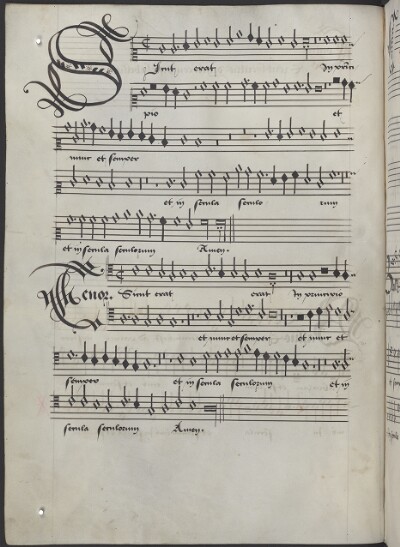 Sicut erat In prin
pio et
nunc et semper
et in secula seculo rum
et in secula seculorum Amen.
Tenor. Sicut erat erat In principio
et nunc et semper et nunc et
semper et in secula seculorum et in
secula seculorum Amen.